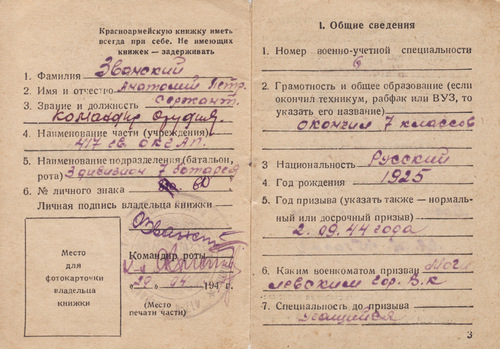 Красноармейскую книжку иметь
всегда при себе. Не имеющих
книжек — задерживать
1. Фамилия Званский
2. Имя и отчество Анатолий Петр.
3. Звание и должность Сержант.
Командир Орудия.
4. Наименование части (учреждения)
417 гв.
5. Наименование подразделения (батальон,
рота) 3 дивизион 7 батарея
6. № личного знака 60
Личная подпись владельца книжки
Место
для
фотокарточки
владельца
книжки
Командир роты
04 194 г.
(Место
печати части)
I. Общие сведения
1. Номер военно-учетной специальности
2. Грамотность и общее образование (если
окончил техникум, рабфак или ВУЗ, то
указать его название)
окончил 7 классов
3. Национальность Русский
4. Год рождения 1925
5. Год призыва (указать также — нормаль-
ный или досрочный призыв)
2. 09. 44 года
6. Каким военкоматом призван Мог
левским гор. В.К
7. Специальность до призыва
учащийся
3